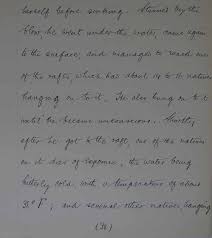 himself before sinking. Stunned by the
blow he went under the water, came again
to the surface, and managed to reach one
of the rafts which has about 14 to 16 natives
hanging on to it. He also hung on to it
until he became unconscious. Shortly
after he got to the raft, one of the natives
on it died of exposure, the water being
bitterly cold with a temperature of about
31° F, and several other natives hanging
(36)